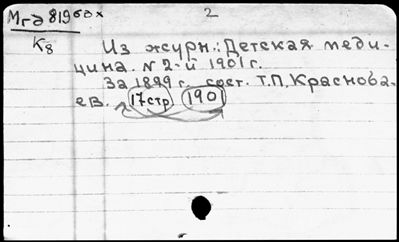 Мгд 819 60х
2
К8
Из журн.: Детская меди-
цина. N 2-й 1901 г.
За 1899 г. сост. Т.П. Краснова-
ев. 17 стр 190